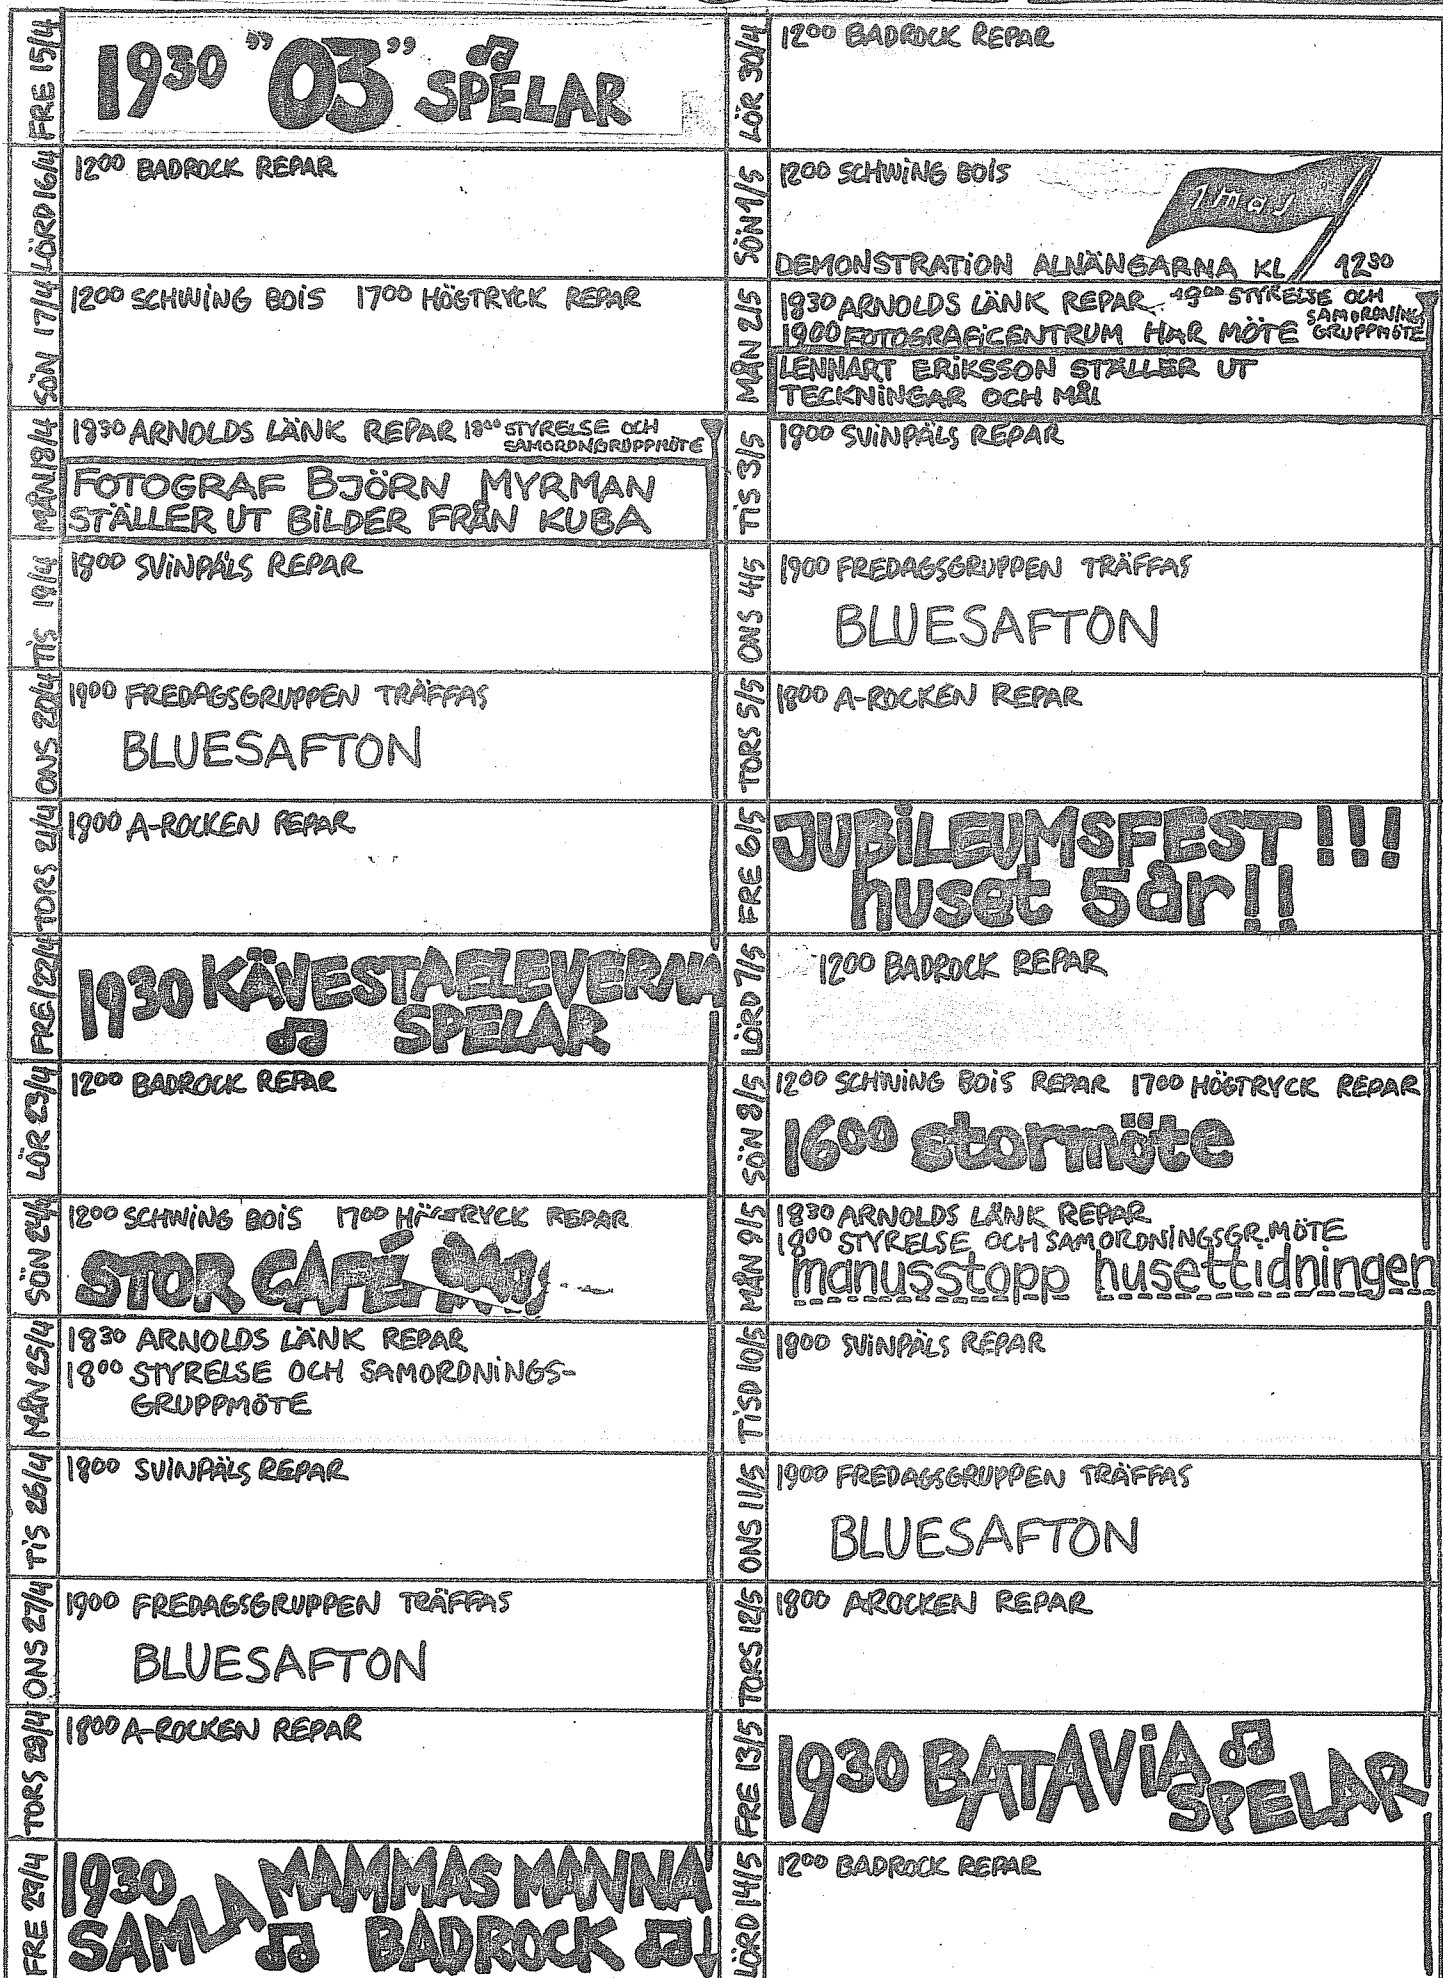 FRE 15/4
1930 "03" SPELAR
LÖRD 16/4
1200 BADROCK REPAR
SÖN 17/4
1200 SCHWING BOIS 1700 HÖGTRYCK REPAR
MÅN 18/4
1830 ARNOLDS LÄNK REPAR 1800 STYRELSE OCH
SAMORDNGRUPPMÖTE
FOTOGRAF BJÖRN MYRMAN
STÄLLER UT BILDER FRÅN KUBA
TIS 19/4
1800 SVINPÄLS REPAR
ONS 20/4
1900 FREDAGSGRUPPEN TRÄFFAS
BLUESAFTON
TORS 21/4
1800 A-ROCKEN REPAR
FRE 22/4
1930 KÄVESTAELEVERNA
SPELAR
LÖR 23/4
1200 BADROCK REPAR
SÖN 24/4
1200 SCHWING BOIS 1700 HÖGTRYCK REPAR
STOR CAFÉ
MÅN 25/4
1830 ARNOLDS LÄNK REPAR
1800 STYRELSE OCH SAMORDNINGS-
GRUPPMÖTE
TIS 26/4
1800 SVINPÄLS REPAR
ONS 27/4
1900 FREDAGSGRUPPEN TRÄFFAS
BLUESAFTON
TORS 28/4
1800 A-ROCKEN REPAR
FRE 29/4
1930 SAMLA MAMMAS MANNA
BADROCK
LÖR 30/4
1200 BADROCK REPAR
SÖN 1/5
1200 SCHWING BOIS
1 maj
DEMONSTRATION ALNÄNGARNA KL 1230
MÅN 2/5
1830 ARNOLDS LÄNK REPAR 1800 STYRELSE OCH
SAMORDNING
GRUPPMÖTE
1900 FOTOGRAFICENTRUM HAR MÖTE
LENNART ERIKSSON STÄLLER UT
TECKNINGAR OCH MÅL
TIS 3/5
1800 SVINPÄLS REPAR
ONS 4/5
1900 FREDAGSGRUPPEN TRÄFFAS
BLUESAFTON
TORS 5/5
1800 A-ROCKEN REPAR
FRE 6/5
JUBILEUMSFEST!!!
huset 5år!!
LÖRD 7/5
1200 BADROCK REPAR
SÖN 8/5
1200 SCHWING BOIS REPAR 1700 HÖGTRYCK REPAR
1600 stormöte
MÅN 9/5
1830 ARNOLDS LÄNK REPAR
1800 STYRELSE OCH SAMORDNINGSGR.MÖTE
manusstopp husettidningen
TISD 10/5
1800 SVINPÄLS REPAR
ONS 11/5
1900 FREDAGSGRUPPEN TRÄFFAS
BLUESAFTON
TORS 12/5
1800 AROCKEN REPAR
FRE 13/5
1930 BATAVIA
SPELAR
LÖRD 14/5
1200 BADROCK REPAR